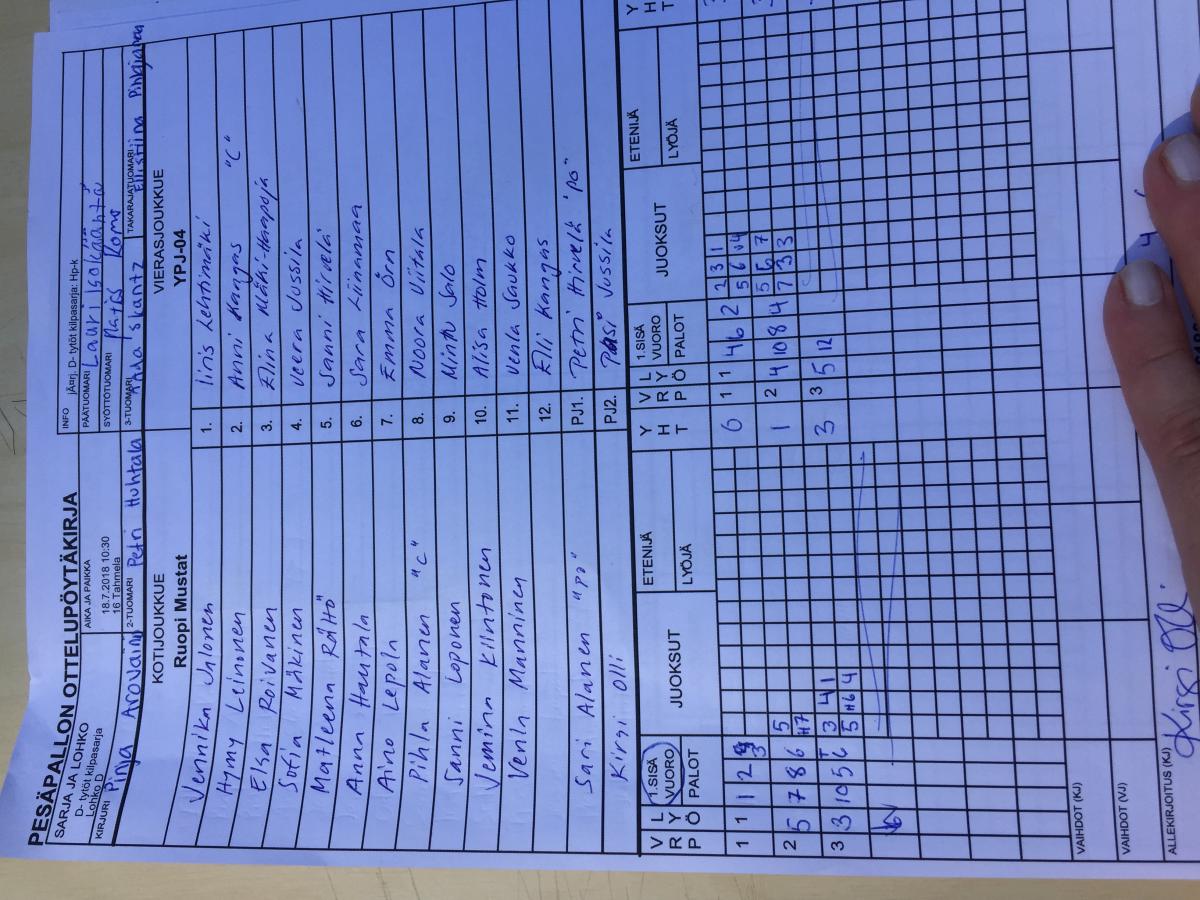 PESÄPALLON OTTELUPÖYTÄKIRJA
SARJA JA LOHKO
D- tytöt kilpasarja
Lohko D
AIKA JA PAIKKA
18.7.2018 10:30
16 Tahmela
INFO jÄrj. D- tytöt kilpasarja: Hp-k
PÄÄTUOMARI Lauri Isokääntä
SYÖTTÖTUOMARI
KIRJURI Pinja Arovaini
2-TUOMARI Petri Huhtala
3-TUOMARI Anna Skantz
TAKARAJATUOMARI
KOTIJOUKKUE
Ruopi Mustat
VIERASJOUKKUE
YPJ-04
Vennika Uhlonen 1. Iiris Lehtimäki
Hymy Leinonen 2. Anni Kangas "C"
Elsa Roivanen 3. Elina Mäki-Haapoja
Sofia Mäkinen 4. Veera Jussila
Matleena Rältö 5. Sanni Hirvelä
Anna Hautala 6. Sara Liinamaa
Aino Lepola 7. Emma Örn
Pihla Alanen "C" 8. Noora Viitala
Sanni Loponen 9. Minttu Salo
Jemina Kiintonen 10. Alisa Holm
Venla Manninen 11. Venla Saukko
12. Elli Kangas
Sari Alanen "PJ" PJ1. Petri Hirvelä
Kirsi Olli PJ2. Pasi Jussila
V R P L Y Ö 1.SISÄ VUORO PALOT JUOKSUT ETENIJÄ LYÖJÄ Y H T V R P L Y Ö 1.SISÄ VUORO PALOT JUOKSUT ETENIJÄ LYÖJÄ Y H T
1 1 1 2 3 0 1 1 4 6 2 2 3 1
5 6
2 5 7 8 6 5 1 2 4 10 8 4 5 6 7
7 3 3
3 3 10 5 6 3 4 1 3 3 5 12
5 4
VAIHDOT (KJ)
VAIHDOT (VJ)
ALLEKIRJOITUS (KJ) Kirsi Olli